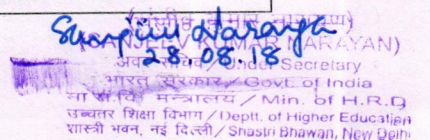 Sanjiiv Narayan
28.08.18
(संजीव कुमार नारायण)
(SANJEEV KUMAR NARAYAN)
अवर सचिव / Under Secretary
भारत सरकार / Govt. of India
मा.सं.वि. मन्त्रालय / Min. of H.R.D.
उच्चतर शिक्षा विभाग / Deptt. of Higher Education
शास्त्री भवन, नई दिल्ली / Shastri Bhawan, New Delhi